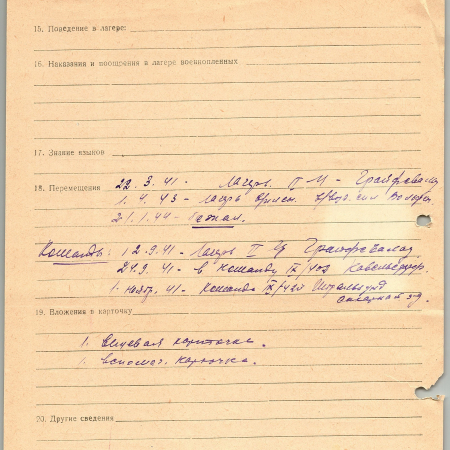 15. Поведение в лагере:
16. Наказания и поощрения в лагере военнопленных
17. Знание языков
18. Перемещения 22. 3. 41 - Лагерь II М - Грайфсвальд
1. 4. 43 - Лагерь
21. 1. 44 - бежал.
Команды: 12. 9. 41 - Лагерь II Грайфсвальд
24. 9. 41 - в команду IX/403
1. нояб. 41 - Команда IX/420 Штральзунд
19. Вложения в карточку
1. Лицевая карточка.
1. вспомог. карточка.
20. Другие сведения